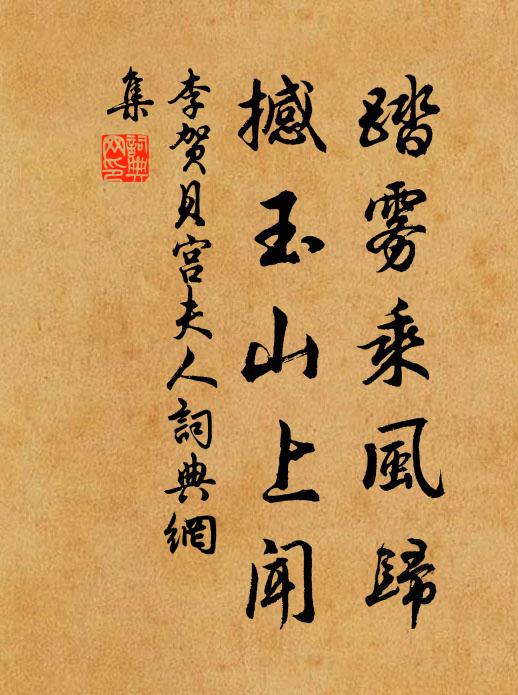 踏雾乘風歸
撼玉山上闻
李贺貝宫夫人詞典網
集
詞典
网印